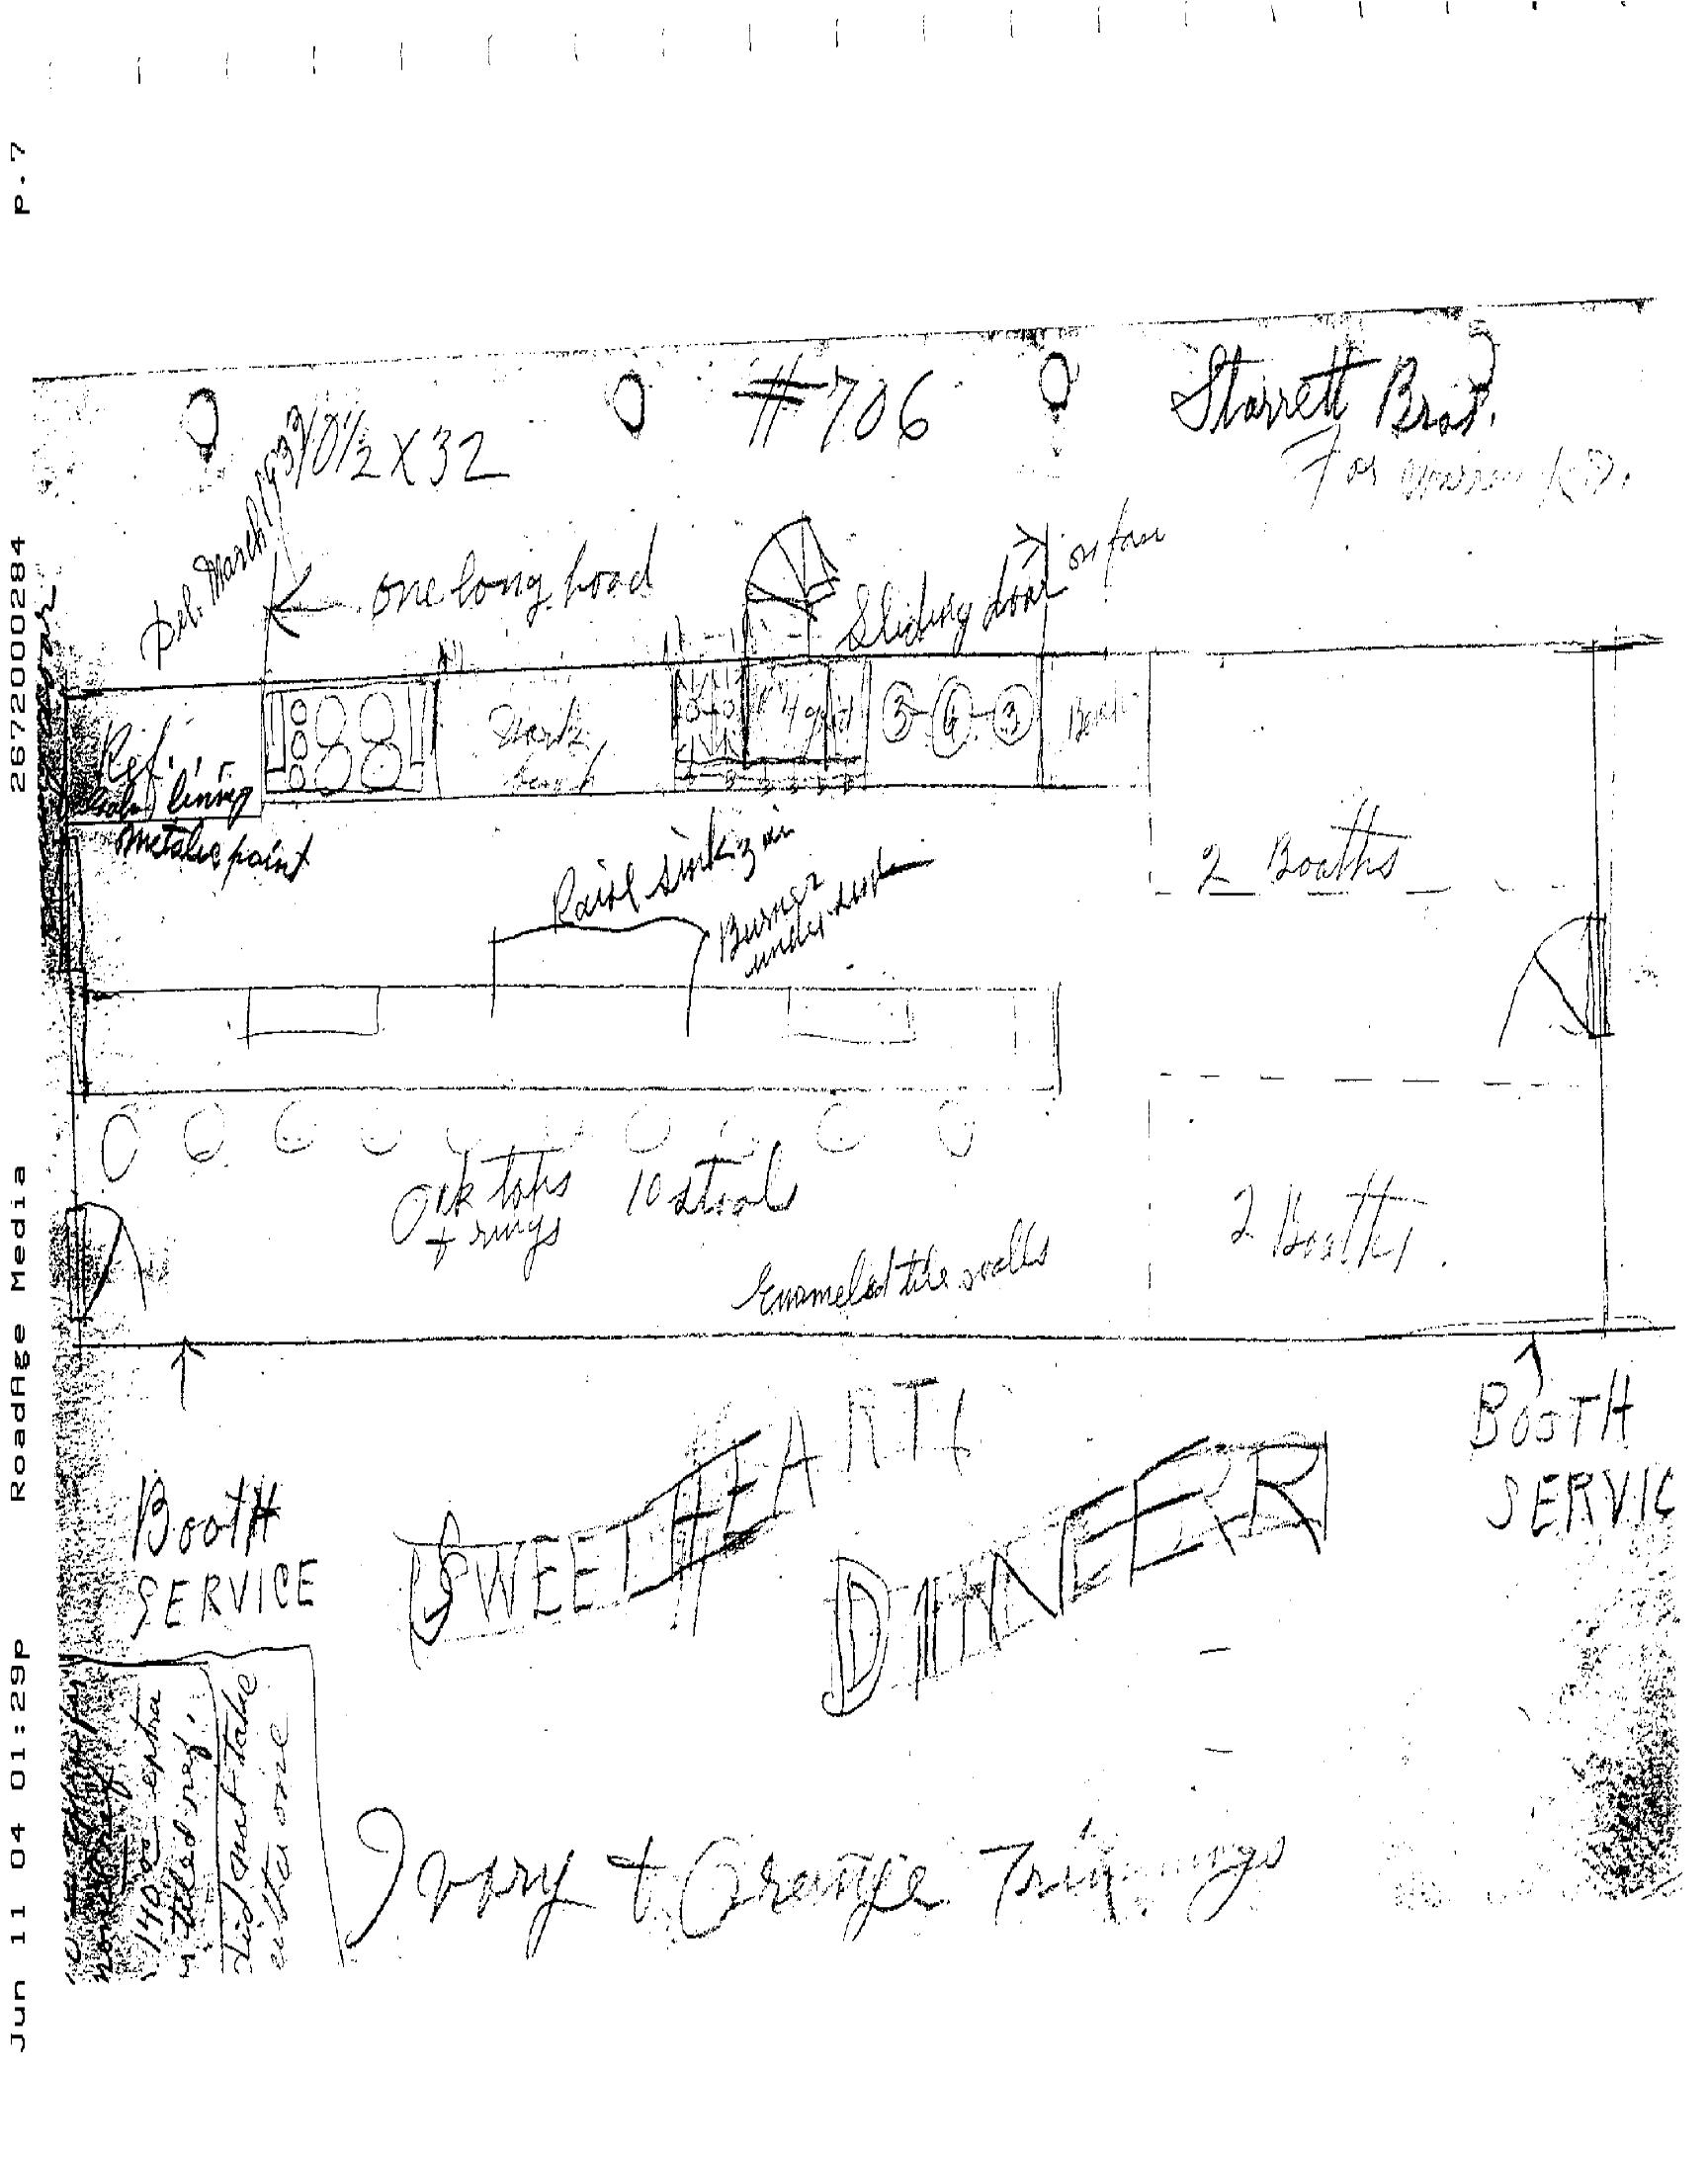 P.7
2672000284
RoadAge Media
Jun 11 04 01:29p
#706
Starrett Bros.
For
10½ X 32
Del. March 1939
one long hood
Sliding door
on fan
Ref.
lining
metalic paint
Work
bench
3 4 3
2 Booths
Raise sink 3 in
Burner
under sink
Oak tops
+ rings
10 stools
Enameled tile walls
2 Booths
BOOTH
SERVICE
SWEETHEART
DINER
BOOTH
SERVIC
140 00 extra
tiled ref.
did not take
either one
Ivory & Orange Trimmings